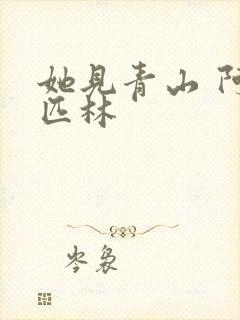 她见青山 阿
匹林
岑袅